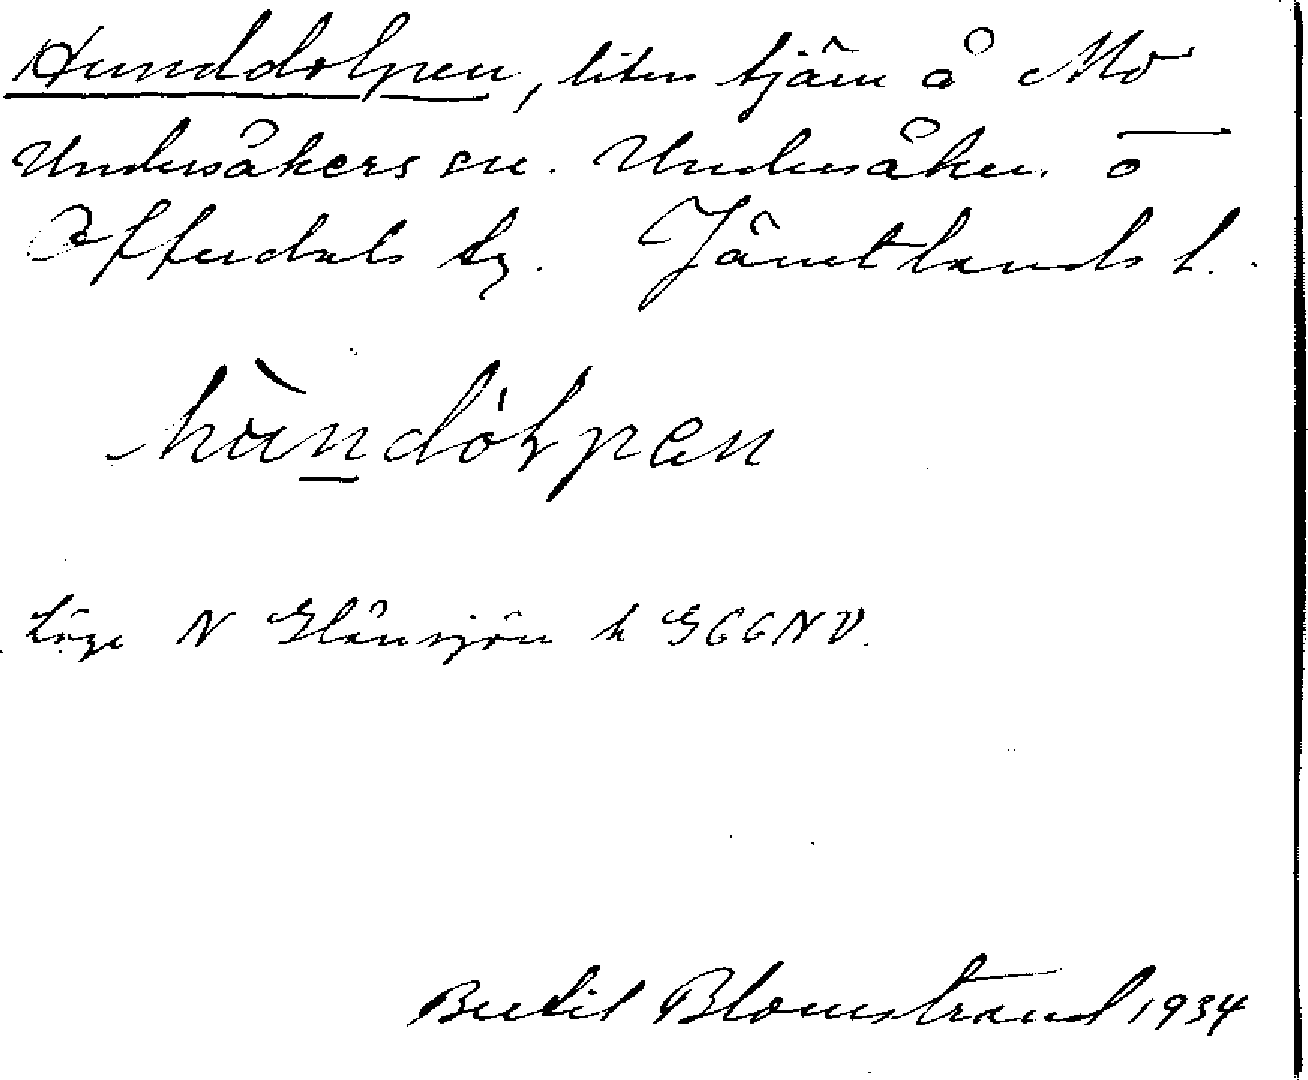 Hunddolpen, liten tjärn å Mo
Undersåkers sn. Undersåkers o
Offerdals tg. Jämtlands l.
hùndólpen
Läge N Glänsjön h 566NV.
Bertil Blomstrand 1934